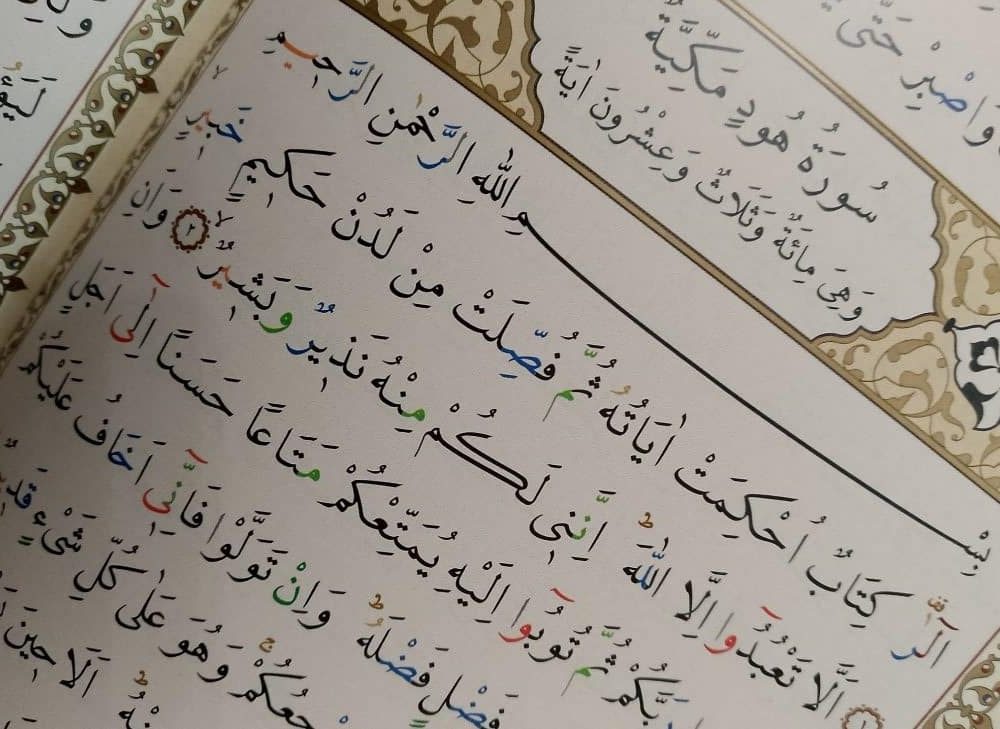 وَاصْبِرْ حَتّٰى
سُورَةُ هُودٍ مَكِّيَّةٌ
وَهِيَ مِائَةٌ وَثَلَاثٌ وَعِشْرُونَ اٰيَةً
بِسْمِ اللّٰهِ الرَّحْمٰنِ الرَّحِيمِ
الٓرٰ كِتَابٌ اُحْكِمَتْ اٰيَاتُهُ ثُمَّ فُصِّلَتْ مِنْ لَدُنْ حَكِيمٍ خَبِيرٍ
١ اَلَّا تَعْبُدُٓوا اِلَّا اللّٰهَ اِنَّنِى لَكُمْ مِنْهُ نَذِيرٌ وَبَشِيرٌ ٢ وَاَنِ
رَبَّكُمْ ثُمَّ تُوبُٓوا اِلَيْهِ يُمَتِّعْكُمْ مَتَاعًا حَسَنًا اِلٰٓى اَجَلٍ
فَضْلٍ فَضْلَهُ وَاِنْ تَوَلَّوْا فَاِنِّٓى اَخَافُ عَلَيْكُمْ
وَهُوَ عَلٰى كُلِّ شَىْءٍ قَدِيرٌ
اَلَا حِينَ